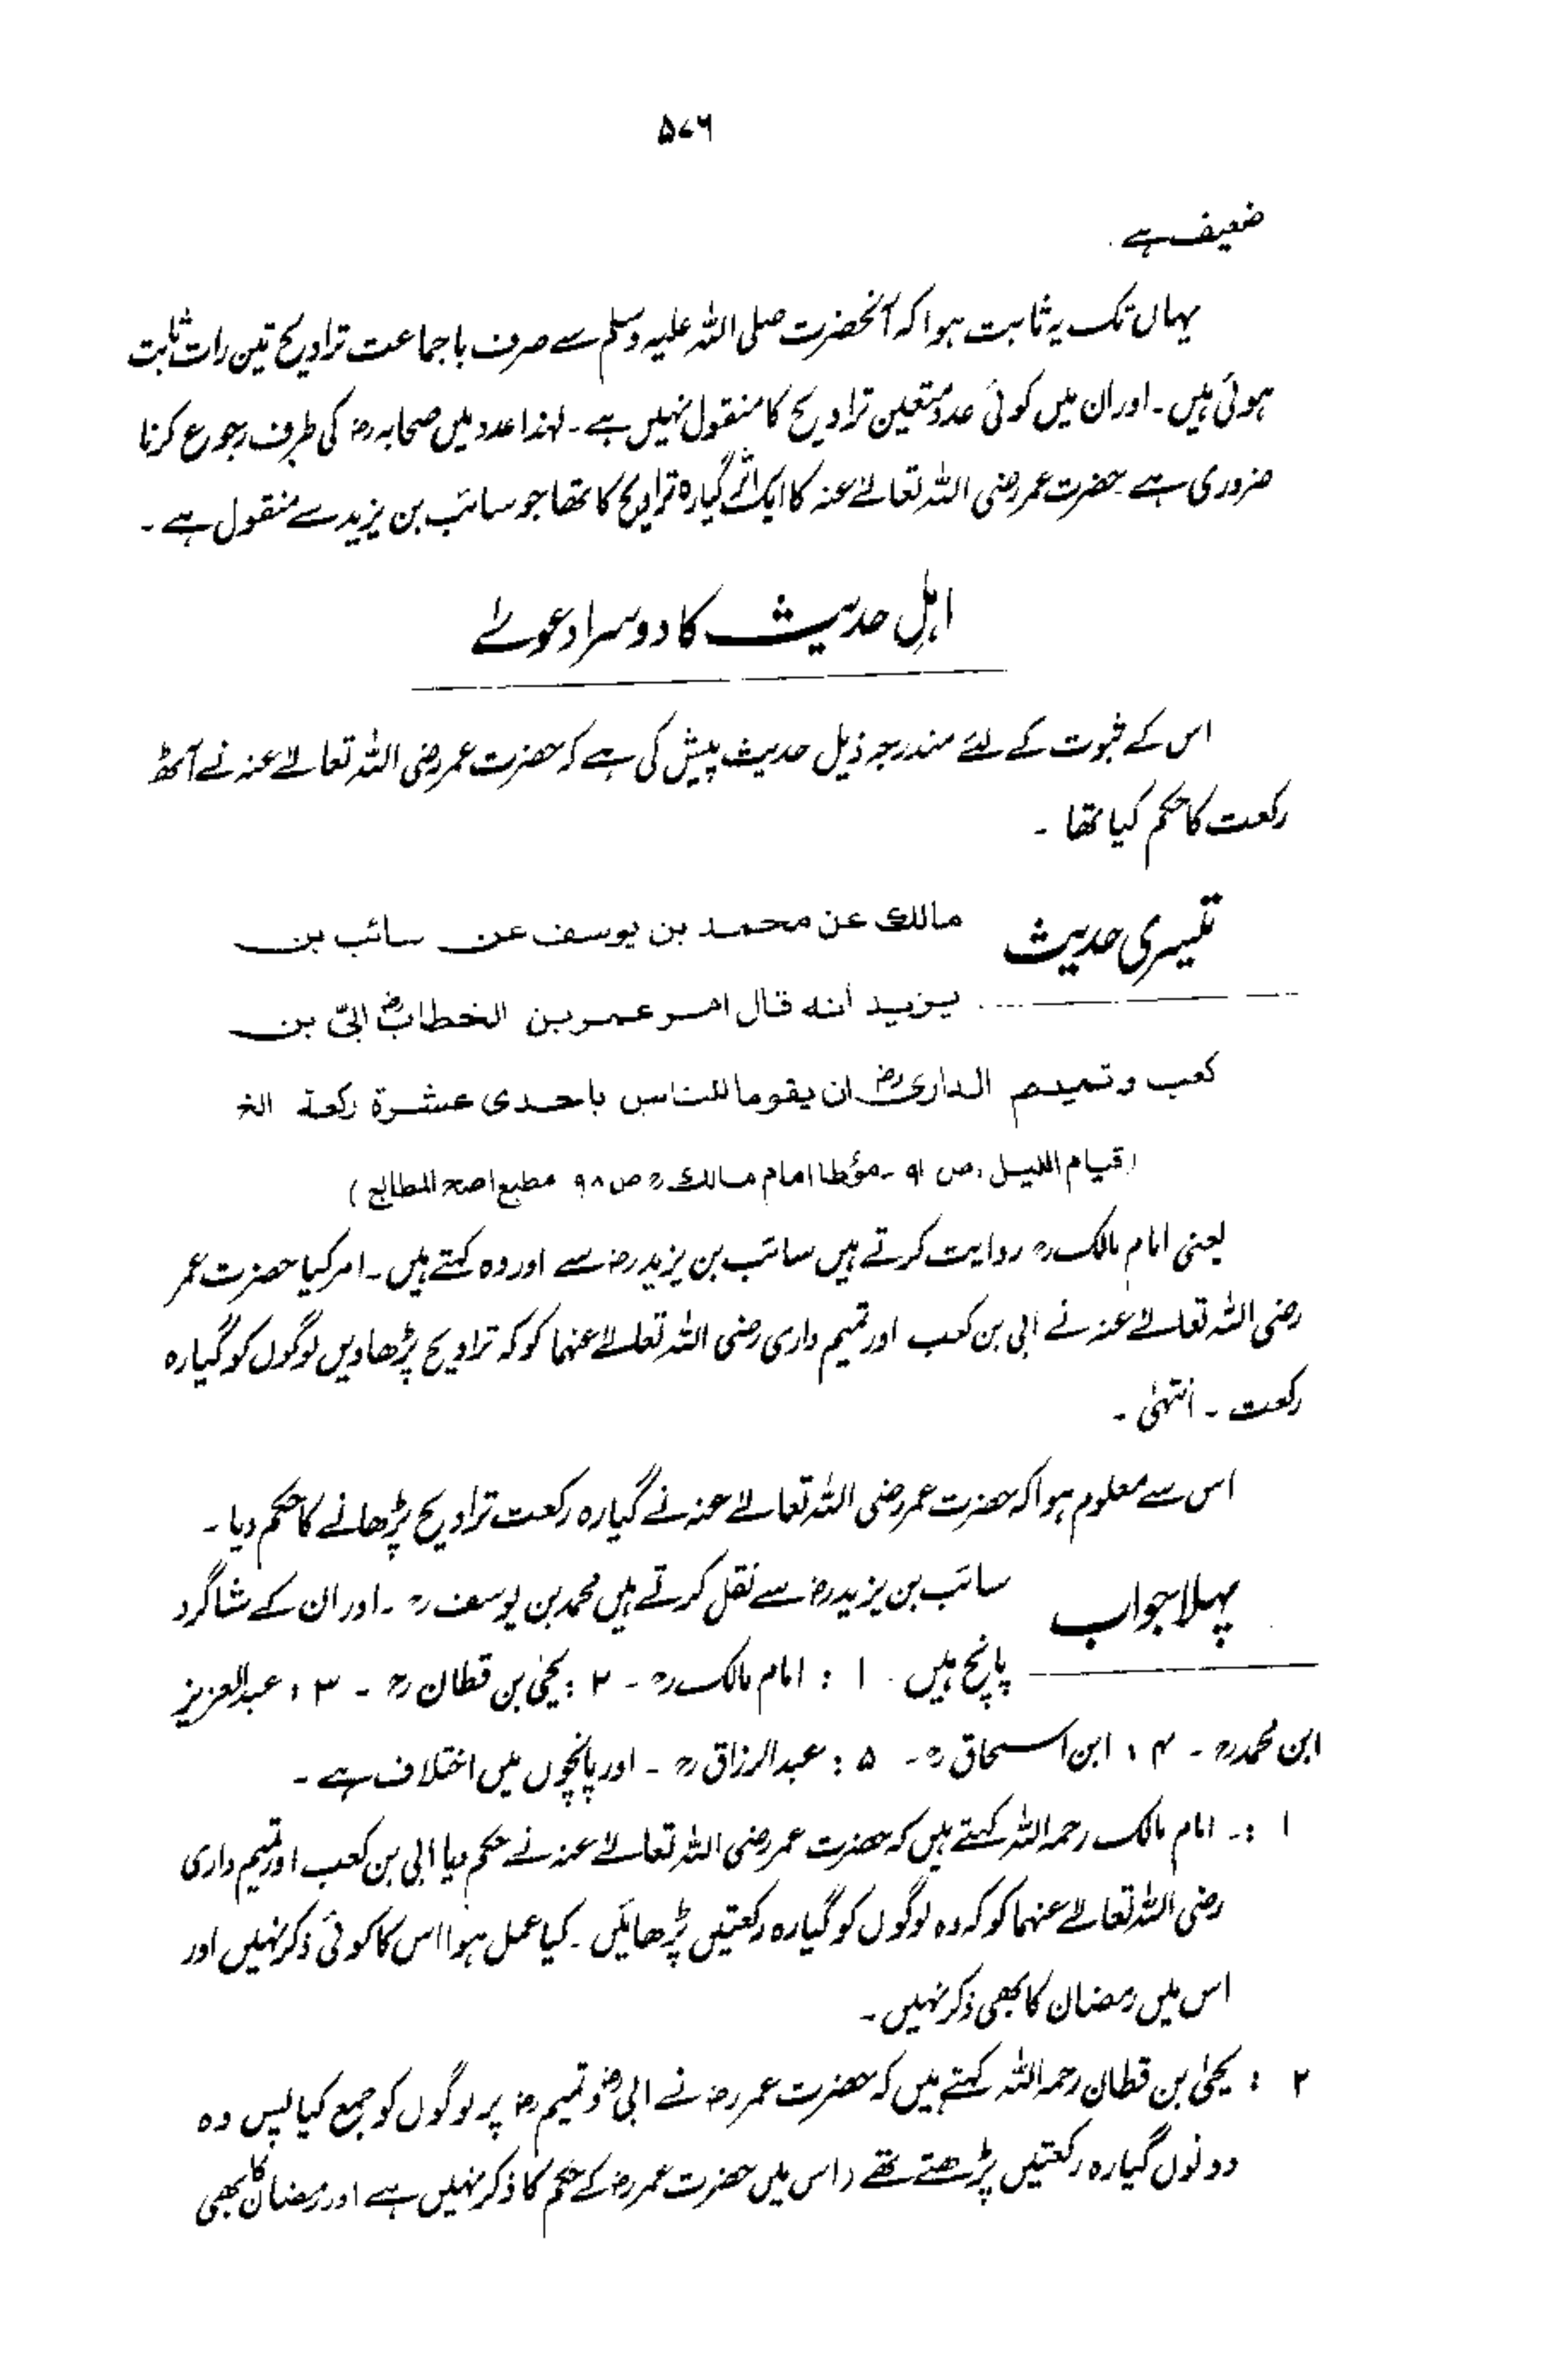 ۵۷۶
ضعیف ہے۔
یہاں تک یہ ثابت ہوا کہ آنحضرت صلی اللہ علیہ وسلم سے صرف باجماعت تراویح تین رات ثابت
ہوئی ہیں۔ اور ان میں کوئی عدد متعین تراویح کا منقول نہیں ہے۔ لہذا عدد میں صحابہ رض کی طرف رجوع کرنا
ضروری ہے حضرت عمر رضی اللہ تعالےٰ عنہ کا ایک اثر گیارہ تراویح کا تھا جو سائب بن یزید سے منقول ہے۔
اہلِ حدیث کا دوسرا دعوےٰ
اس کے ثبوت کے لئے مندرجہ ذیل حدیث پیش کی ہے کہ حضرت عمر رضی اللہ تعالےٰ عنہ نے آٹھ
رکعت کا حکم کیا تھا۔
تیسری حدیث مالك عن محمد بن يوسف عن سائب بن
يزيد أنه قال امر عمر بن الخطابؓ ابيّ بن
كعب وتميم الداریؓ ان يقوما للناس باحدى عشرة ركعة الخ
(قیام اللیل، ص ۹۱۔ مؤطا امام مالک رح ص ۹۸ مطبع اصح المطابع)
یعنی امام مالک رح روایت کرتے ہیں سائب بن یزید رض سے اور وہ کہتے ہیں۔ امر کیا حضرت عمر
رضی اللہ تعالےٰ عنہ نے ابی بن کعب اور تمیم داری رضی اللہ تعالےٰ عنہما کو کہ تراویح پڑھاویں لوگوں کو گیارہ
رکعت۔ انتہیٰ۔
اس سے معلوم ہوا کہ حضرت عمر رضی اللہ تعالےٰ عنہ نے گیارہ رکعت تراویح پڑھانے کا حکم دیا۔
پہلا جواب سائب بن یزید رض سے نقل کرتے ہیں محمد بن یوسف رح۔ اور ان کے شاگرد
پانچ ہیں۔ ۱ : امام مالک رح۔ ۲ : یحیٰی بن قطان رح۔ ۳ : عبدالعزیز
ابن محمد رح۔ ۴ : ابن اسحاق رح۔ ۵ : عبدالرزاق رح۔ اور پانچوں میں اختلاف ہے۔
۱ :۔ امام مالک رحمہ اللہ کہتے ہیں کہ حضرت عمر رضی اللہ تعالےٰ عنہ نے حکم دیا ابی بن کعب اور تمیم داری
رضی اللہ تعالےٰ عنہما کو کہ وہ لوگوں کو گیارہ رکعتیں پڑھائیں۔ کیا عمل ہوا اس کا کوئی ذکر نہیں اور
اس میں رمضان کا بھی ذکر نہیں۔
۲ : یحیٰی بن قطان رحمہ اللہ کہتے ہیں کہ حضرت عمر رض نے ابیؓ و تمیم رض پر لوگوں کو جمع کیا پس وہ
دونوں گیارہ رکعتیں پڑھتے تھے (اس میں حضرت عمر رض کے حکم کا ذکر نہیں ہے اور رمضان کا بھی